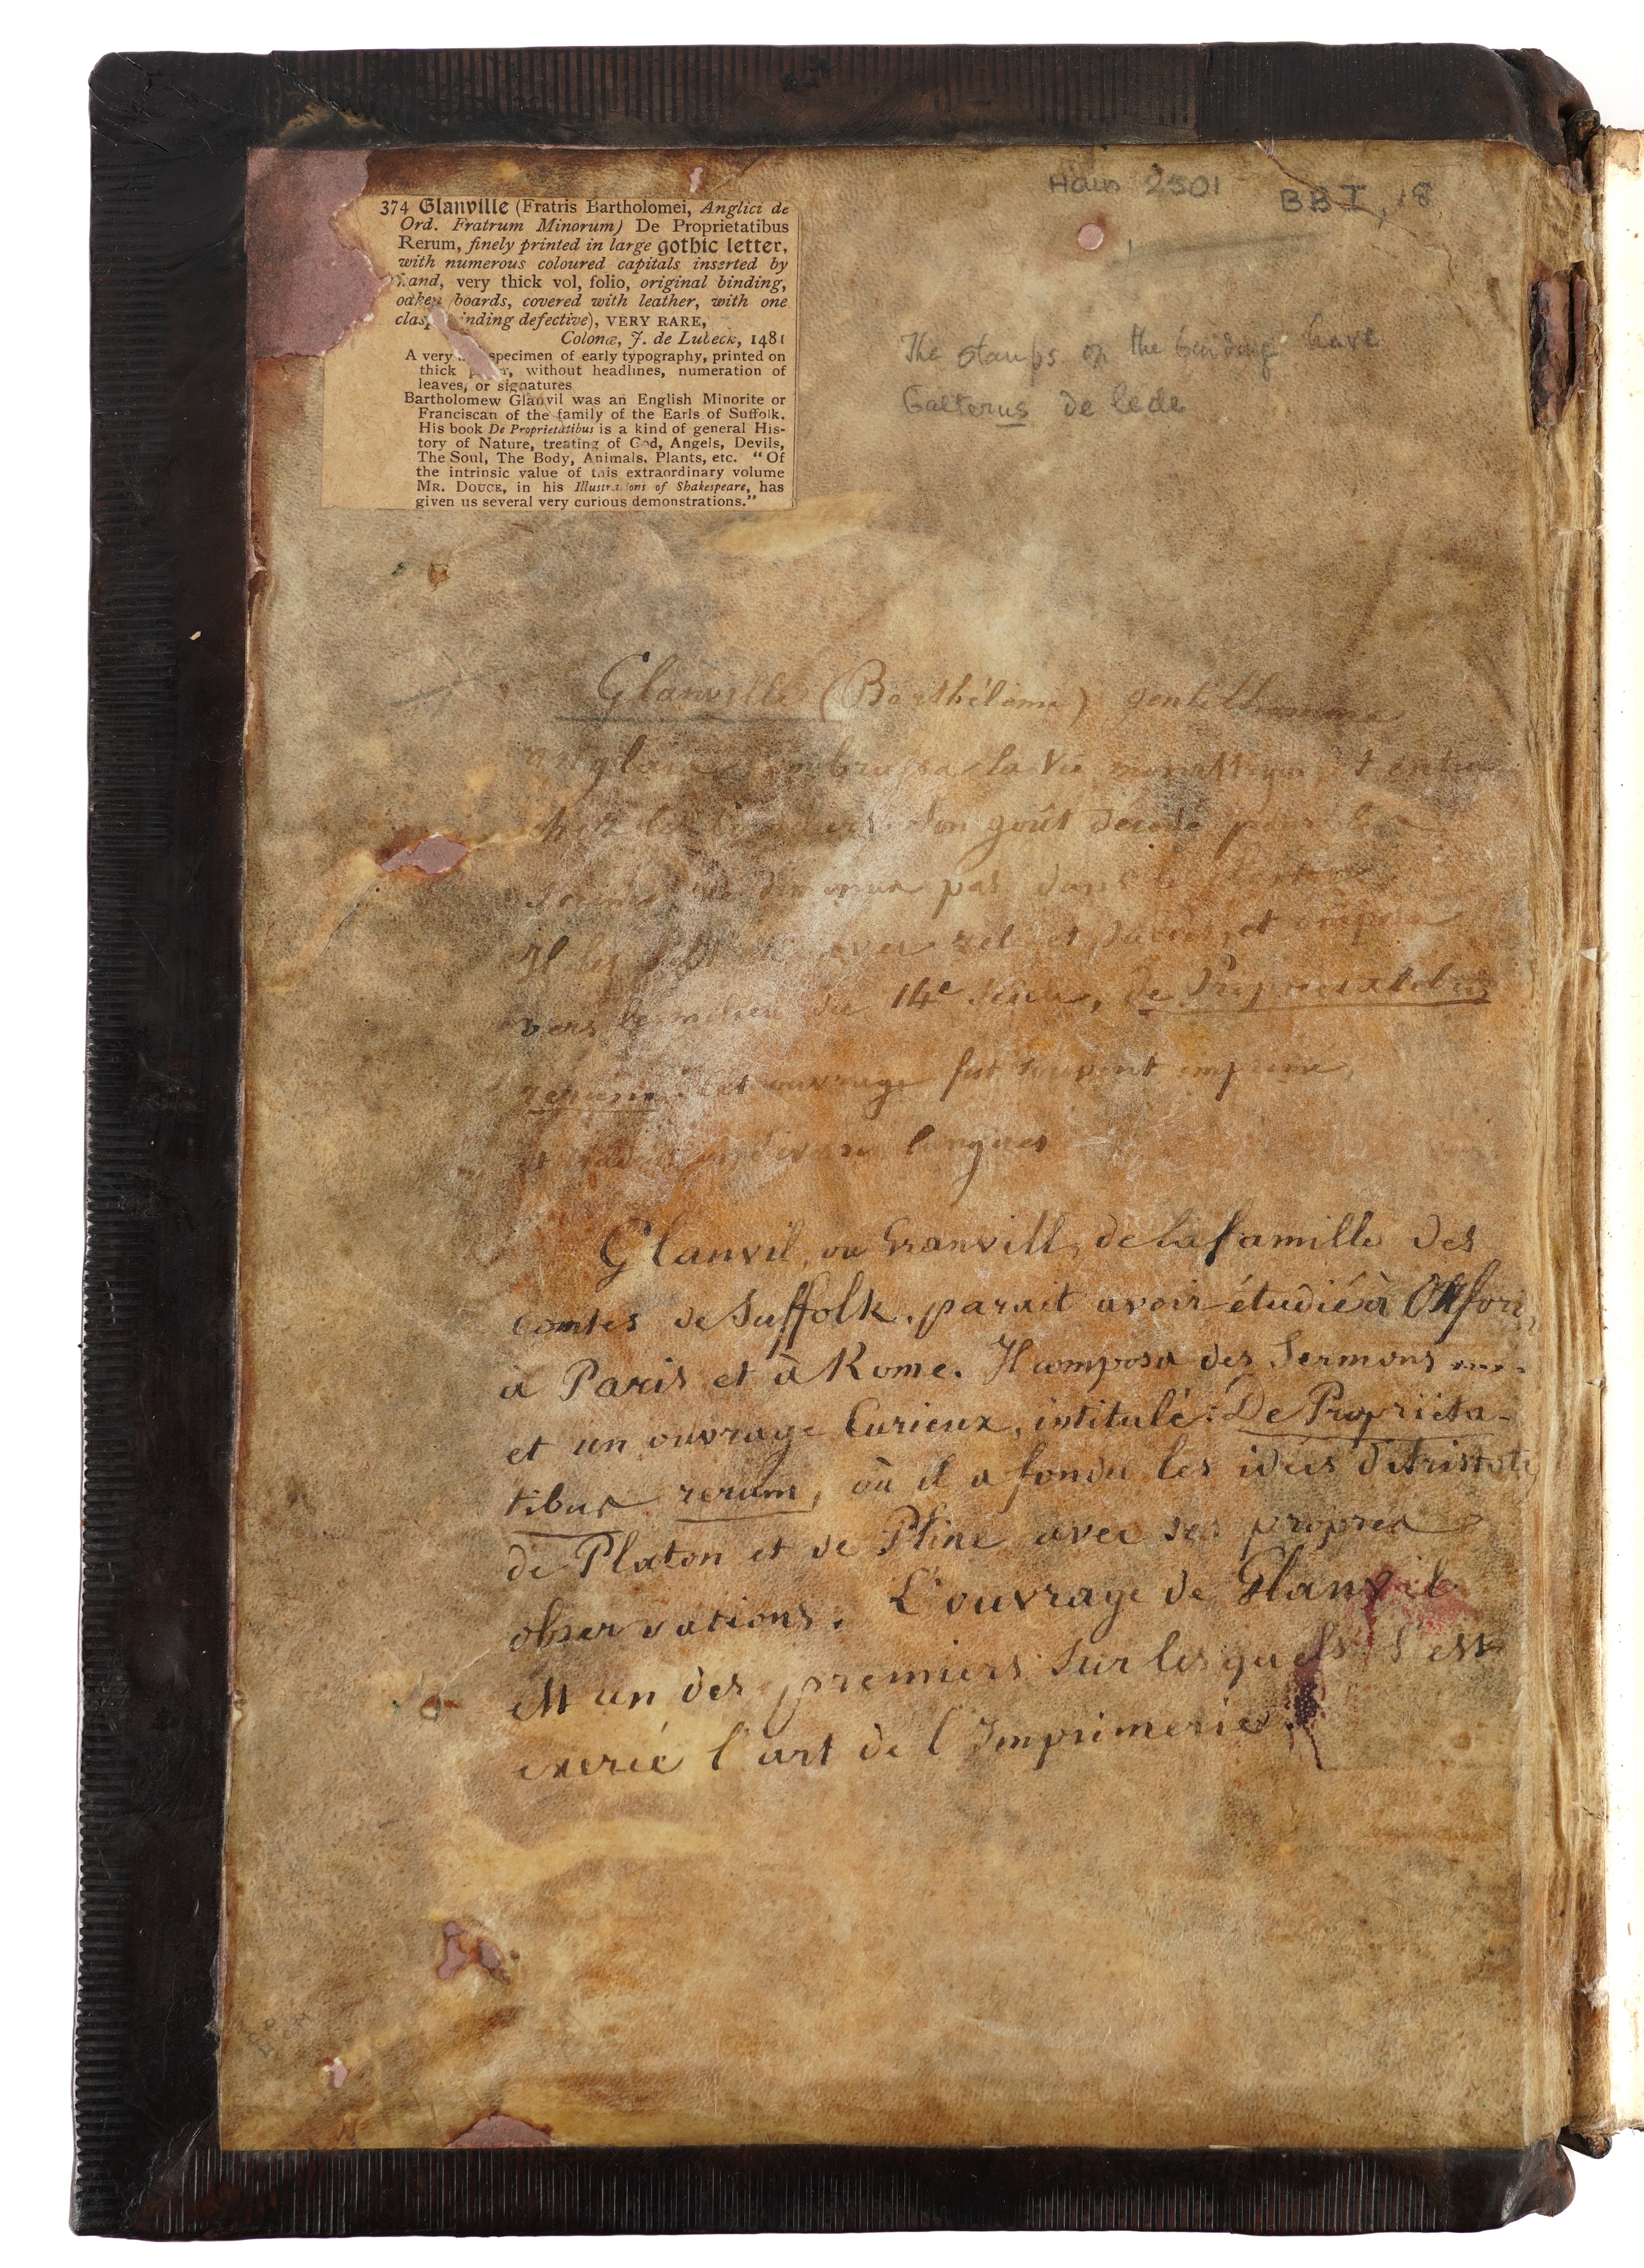 374 Glanville (Fratris Bartholomei, Anglici de
Ord. Fratrum Minorum) De Proprietatibus
Rerum, finely printed in large gothic letter,
with numerous coloured capitals inserted by
hand, very thick vol, folio, original binding,
oaken boards, covered with leather, with one
clasp inding defective), VERY RARE,
Colonæ, J. de Lubeck, 1481
A very specimen of early typography, printed on
thick r, without headlines, numeration of
leaves, or signatures
Bartholomew Glanvil was an English Minorite or
Franciscan of the family of the Earls of Suffolk.
His book De Proprietatibus is a kind of general His-
tory of Nature, treating of God, Angels, Devils,
The Soul, The Body, Animals, Plants, etc. "Of
the intrinsic value of this extraordinary volume
MR. DOUCE, in his Illustrations of Shakespeare, has
given us several very curious demonstrations."
Hain 2501 BB I, 18
The stamps on the binding have
Galterus de lede
Glanville (Barthélome) gentilhomme
anglais embrassa la vie et entra
chez les Son goût décidé pour
ne diminua pas dans le
Il les avec zele et succes, et
vers le milieu du 14e de Proprietatibus
rerum. Cet ouvrage fut souvent imprimé,
et diverses langues
Glanvil, ou Granvill, de la famille des
comtes de Suffolk, parait avoir étudié à Oxford,
à Paris et à Rome. Il composa des Sermons ....
et un ouvrage Curieux, intitulé: De Proprieta-
tibus rerum, où il a fondu les idées d'Aristote,
de Platon et de Pline avec ses propres
observations. L'ouvrage de Glanvil
est un des premiers sur lesquels s'est
exercé l'art de l'Imprimerie.